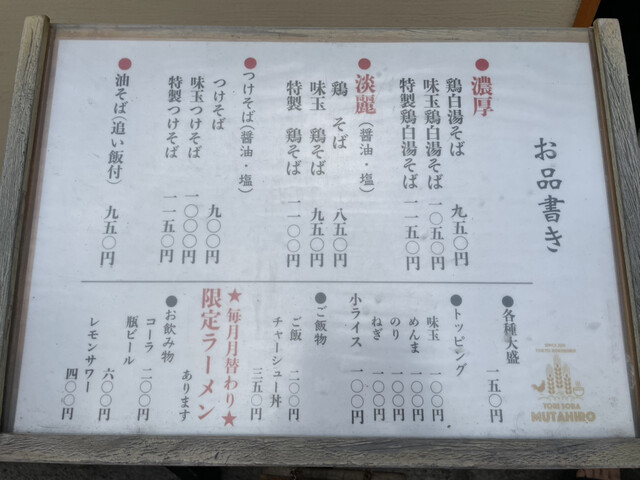 お品書き
●濃厚
鶏白湯そば 九五〇円
味玉鶏白湯そば 一〇五〇円
特製鶏白湯そば 一一五〇円
●淡麗（醤油・塩）
鶏 そば 八五〇円
味玉 鶏そば 九五〇円
特製 鶏そば 一一〇〇円
●つけそば（醤油・塩）
つけそば 九〇〇円
味玉つけそば 一〇〇〇円
特製つけそば 一一五〇円
●油そば（追い飯付） 九五〇円
●各種大盛 一五〇円
●トッピング
味玉 一〇〇円
めんま 一〇〇円
のり 一〇〇円
ねぎ 一〇〇円
小ライス 一〇〇円
●ご飯物
ご飯 二〇〇円
チャーシュー丼 三五〇円
★毎月月替わり★
限定ラーメン
あります
●お飲み物
コーラ 二〇〇円
瓶ビール 六〇〇円
レモンサワー 四〇〇円
MUTAHIRO